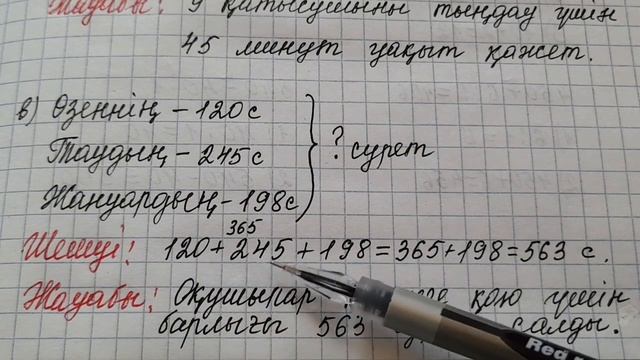 Жауабы: 9 қатысушыны тыңдау үшін
45 минут уақыт қажет.
в) Өзеннің – 120 с
Таудың – 245 с
Жануардың – 198 с
? сурет
365
Шешуі: 120 + 245 + 198 = 365 + 198 = 563 с.
Жауабы: Оқушырар қою үшін
барлығы 563 салды.
Red